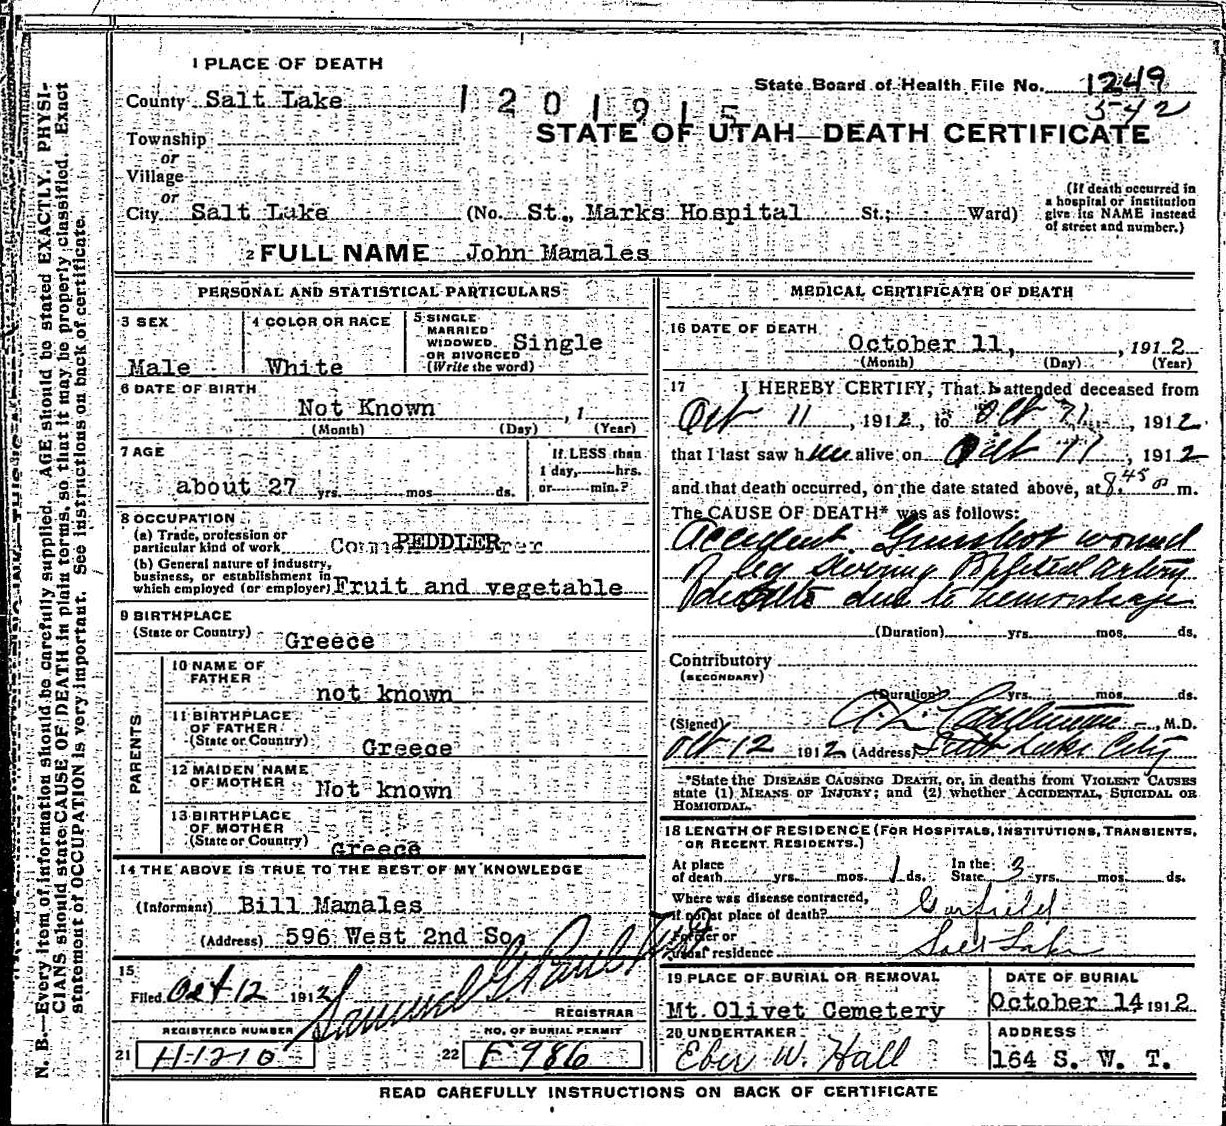 1 PLACE OF DEATH
County Salt Lake
1 2 0 1 9 1 5
State Board of Health File No. 1249
542
STATE OF UTAH—DEATH CERTIFICATE
Township
or
Village
or
City Salt Lake (No. St., Marks Hospital St.; Ward)
(If death occurred in
a hospital or institution
give its NAME instead
of street and number.)
2 FULL NAME John Mamales
PERSONAL AND STATISTICAL PARTICULARS
3 SEX
Male
4 COLOR OR RACE
White
5 SINGLE
MARRIED
WIDOWED
OR DIVORCED
(Write the word)
Single
6 DATE OF BIRTH
Not Known , 1
(Month) (Day) (Year)
7 AGE
about 27 yrs. mos. ds.
If LESS than
1 day, hrs.
or min.?
8 OCCUPATION
(a) Trade, profession or
particular kind of work PEDDLER
(b) General nature of industry,
business, or establishment in
which employed (or employer) Fruit and vegetable
9 BIRTHPLACE
(State or Country) Greece
PARENTS
10 NAME OF
FATHER
not known
11 BIRTHPLACE
OF FATHER
(State or Country) Greece
12 MAIDEN NAME
OF MOTHER Not known
13 BIRTHPLACE
OF MOTHER
(State or Country) Greece
14 THE ABOVE IS TRUE TO THE BEST OF MY KNOWLEDGE
(Informant) Bill Mamales
(Address) 596 West 2nd So.
15
Filed Oct 12 1912 Samuel G. Paul
REGISTRAR
REGISTERED NUMBER
21 H-1210
NO. OF BURIAL PERMIT
22 F 986
MEDICAL CERTIFICATE OF DEATH
16 DATE OF DEATH
October 11, , 1912
(Month) (Day) (Year)
17 I HEREBY CERTIFY, That I attended deceased from
Oct 11 , 1912, to Oct 11 , 1912
that I last saw him alive on Oct 11 , 1912
and that death occurred, on the date stated above, at 8.45 m.
The CAUSE OF DEATH* was as follows:
Accident Gunshot wound
of leg Popliteal artery
due to hemorrhage
(Duration) yrs. mos. ds.
Contributory
(SECONDARY)
(Duration) yrs. mos. ds.
(Signed) A. L. , M.D.
Oct 12 1912 (Address) Salt Lake City
*State the DISEASE CAUSING DEATH, or, in deaths from VIOLENT CAUSES
state (1) MEANS OF INJURY; and (2) whether ACCIDENTAL, SUICIDAL OR
HOMICIDAL.
18 LENGTH OF RESIDENCE (FOR HOSPITALS, INSTITUTIONS, TRANSIENTS,
OR RECENT RESIDENTS.)
At place
of death yrs. mos. 1 ds.
In the
State 3 mos. ds.
Where was disease contracted,
if not at place of death? Garfield
Former or
usual residence Salt Lake
19 PLACE OF BURIAL OR REMOVAL
Mt. Olivet Cemetery
DATE OF BURIAL
October 14 1912
20 UNDERTAKER
Eber W. Hall
ADDRESS
164 S. W. T.
READ CAREFULLY INSTRUCTIONS ON BACK OF CERTIFICATE
N. B.—Every item of information should be carefully supplied. AGE should be stated EXACTLY. PHYSI-
CIANS should state CAUSE OF DEATH in plain terms, so that it may be properly classified. Exact
statement of OCCUPATION is very important. See instructions on back of certificate.